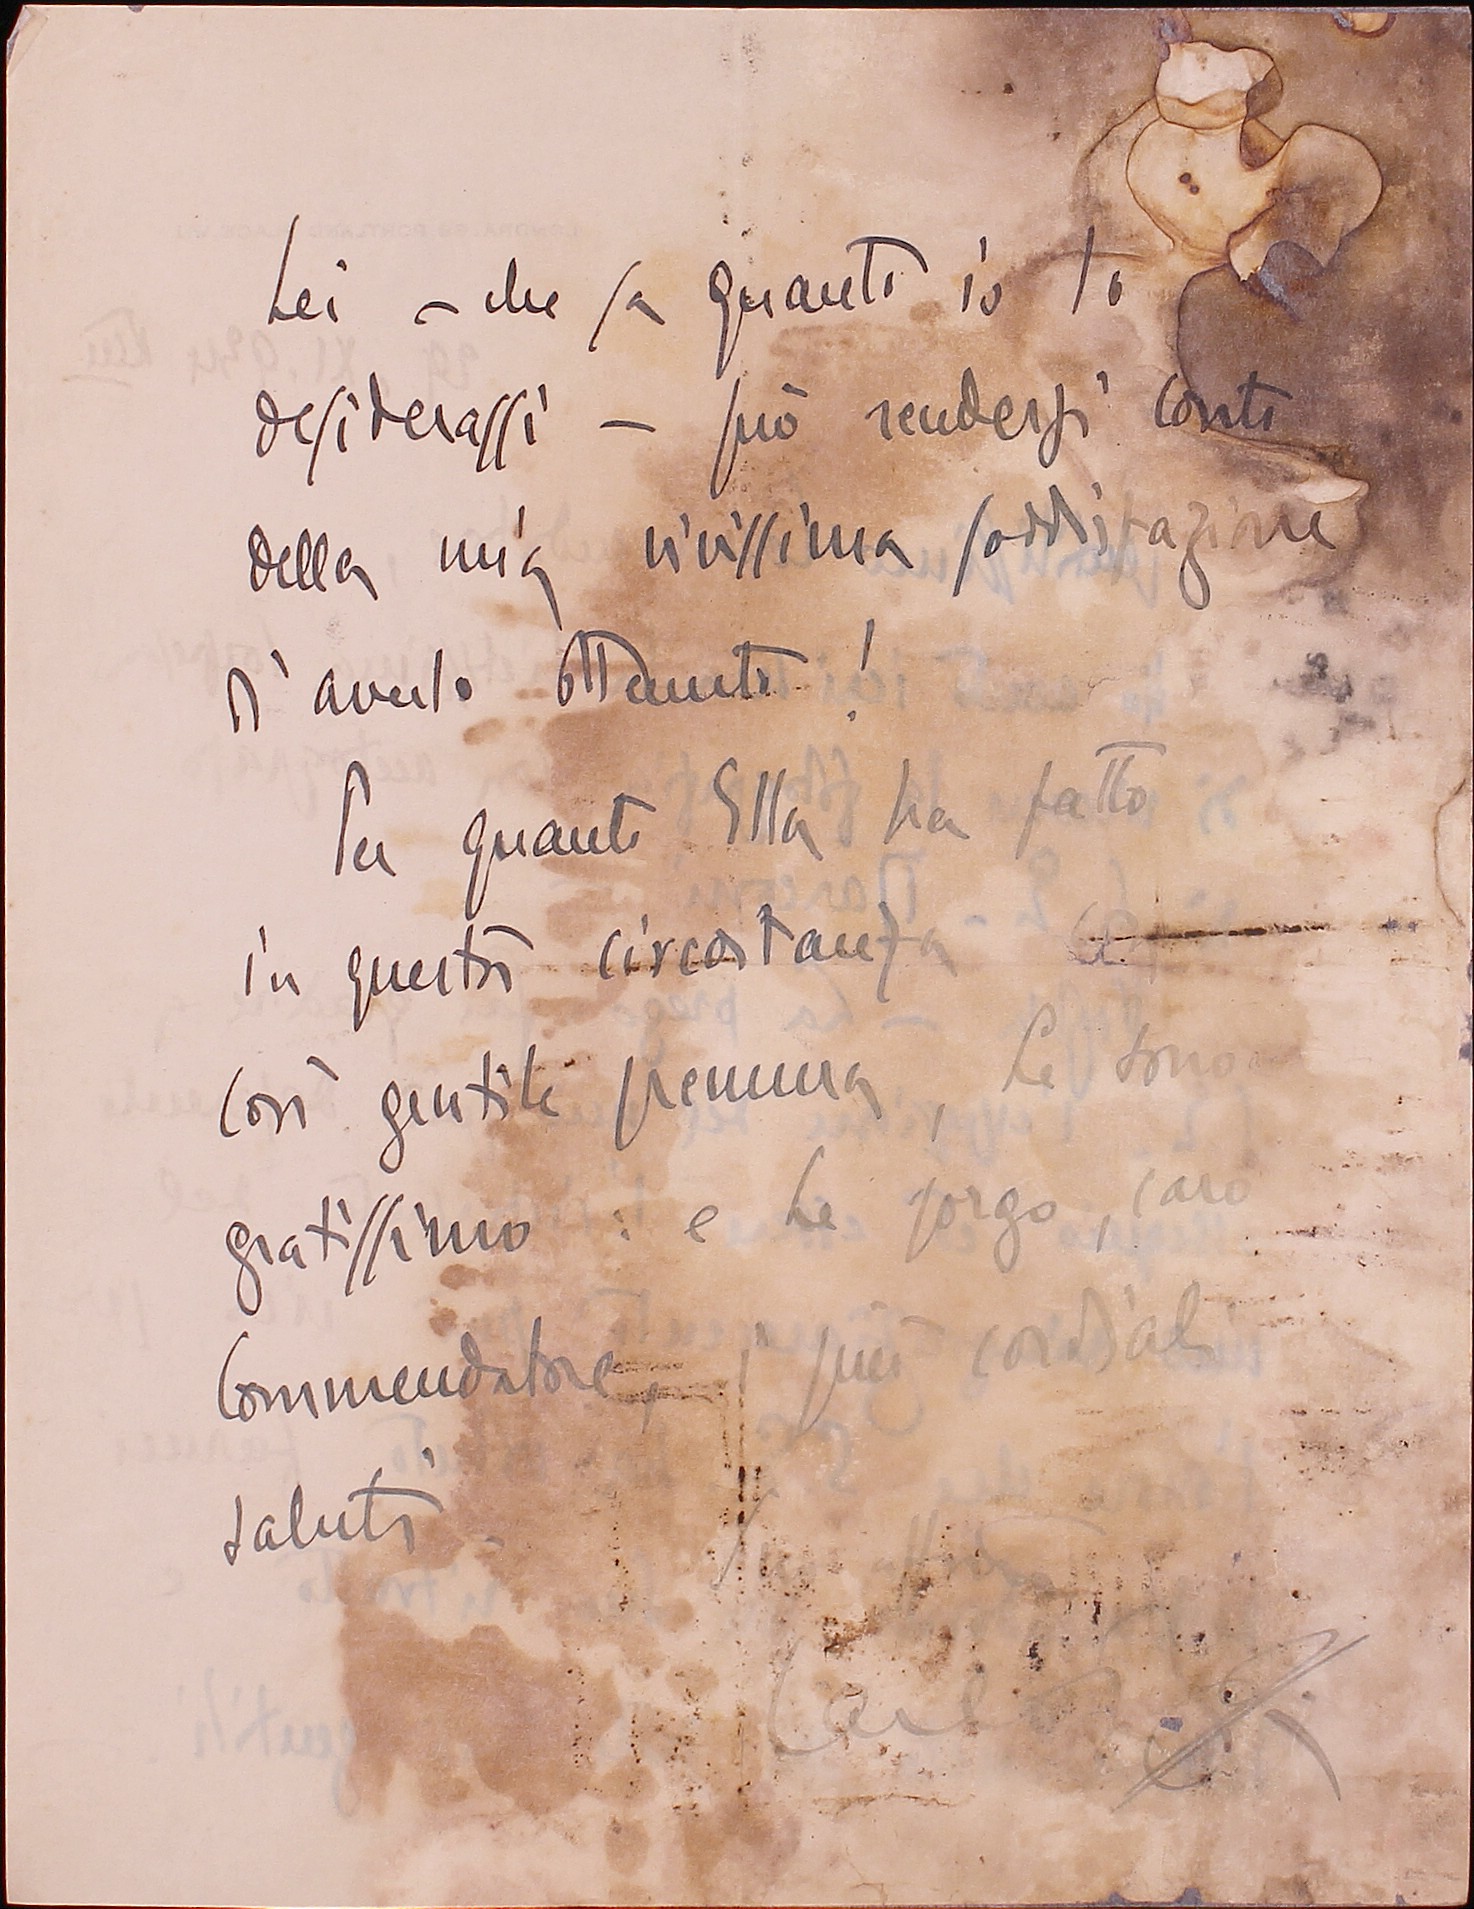 Lei – che sa quanto io lo
desiderassi – può rendersi conto
della mia vivissima soddisfazione
d'averlo ottenuto!
Per quanto Ella ha fatto
in questa circostanza
così gentile premura, Le sono
gratissimo: e Le porgo, caro
Commendatore, i più cordiali
saluti.